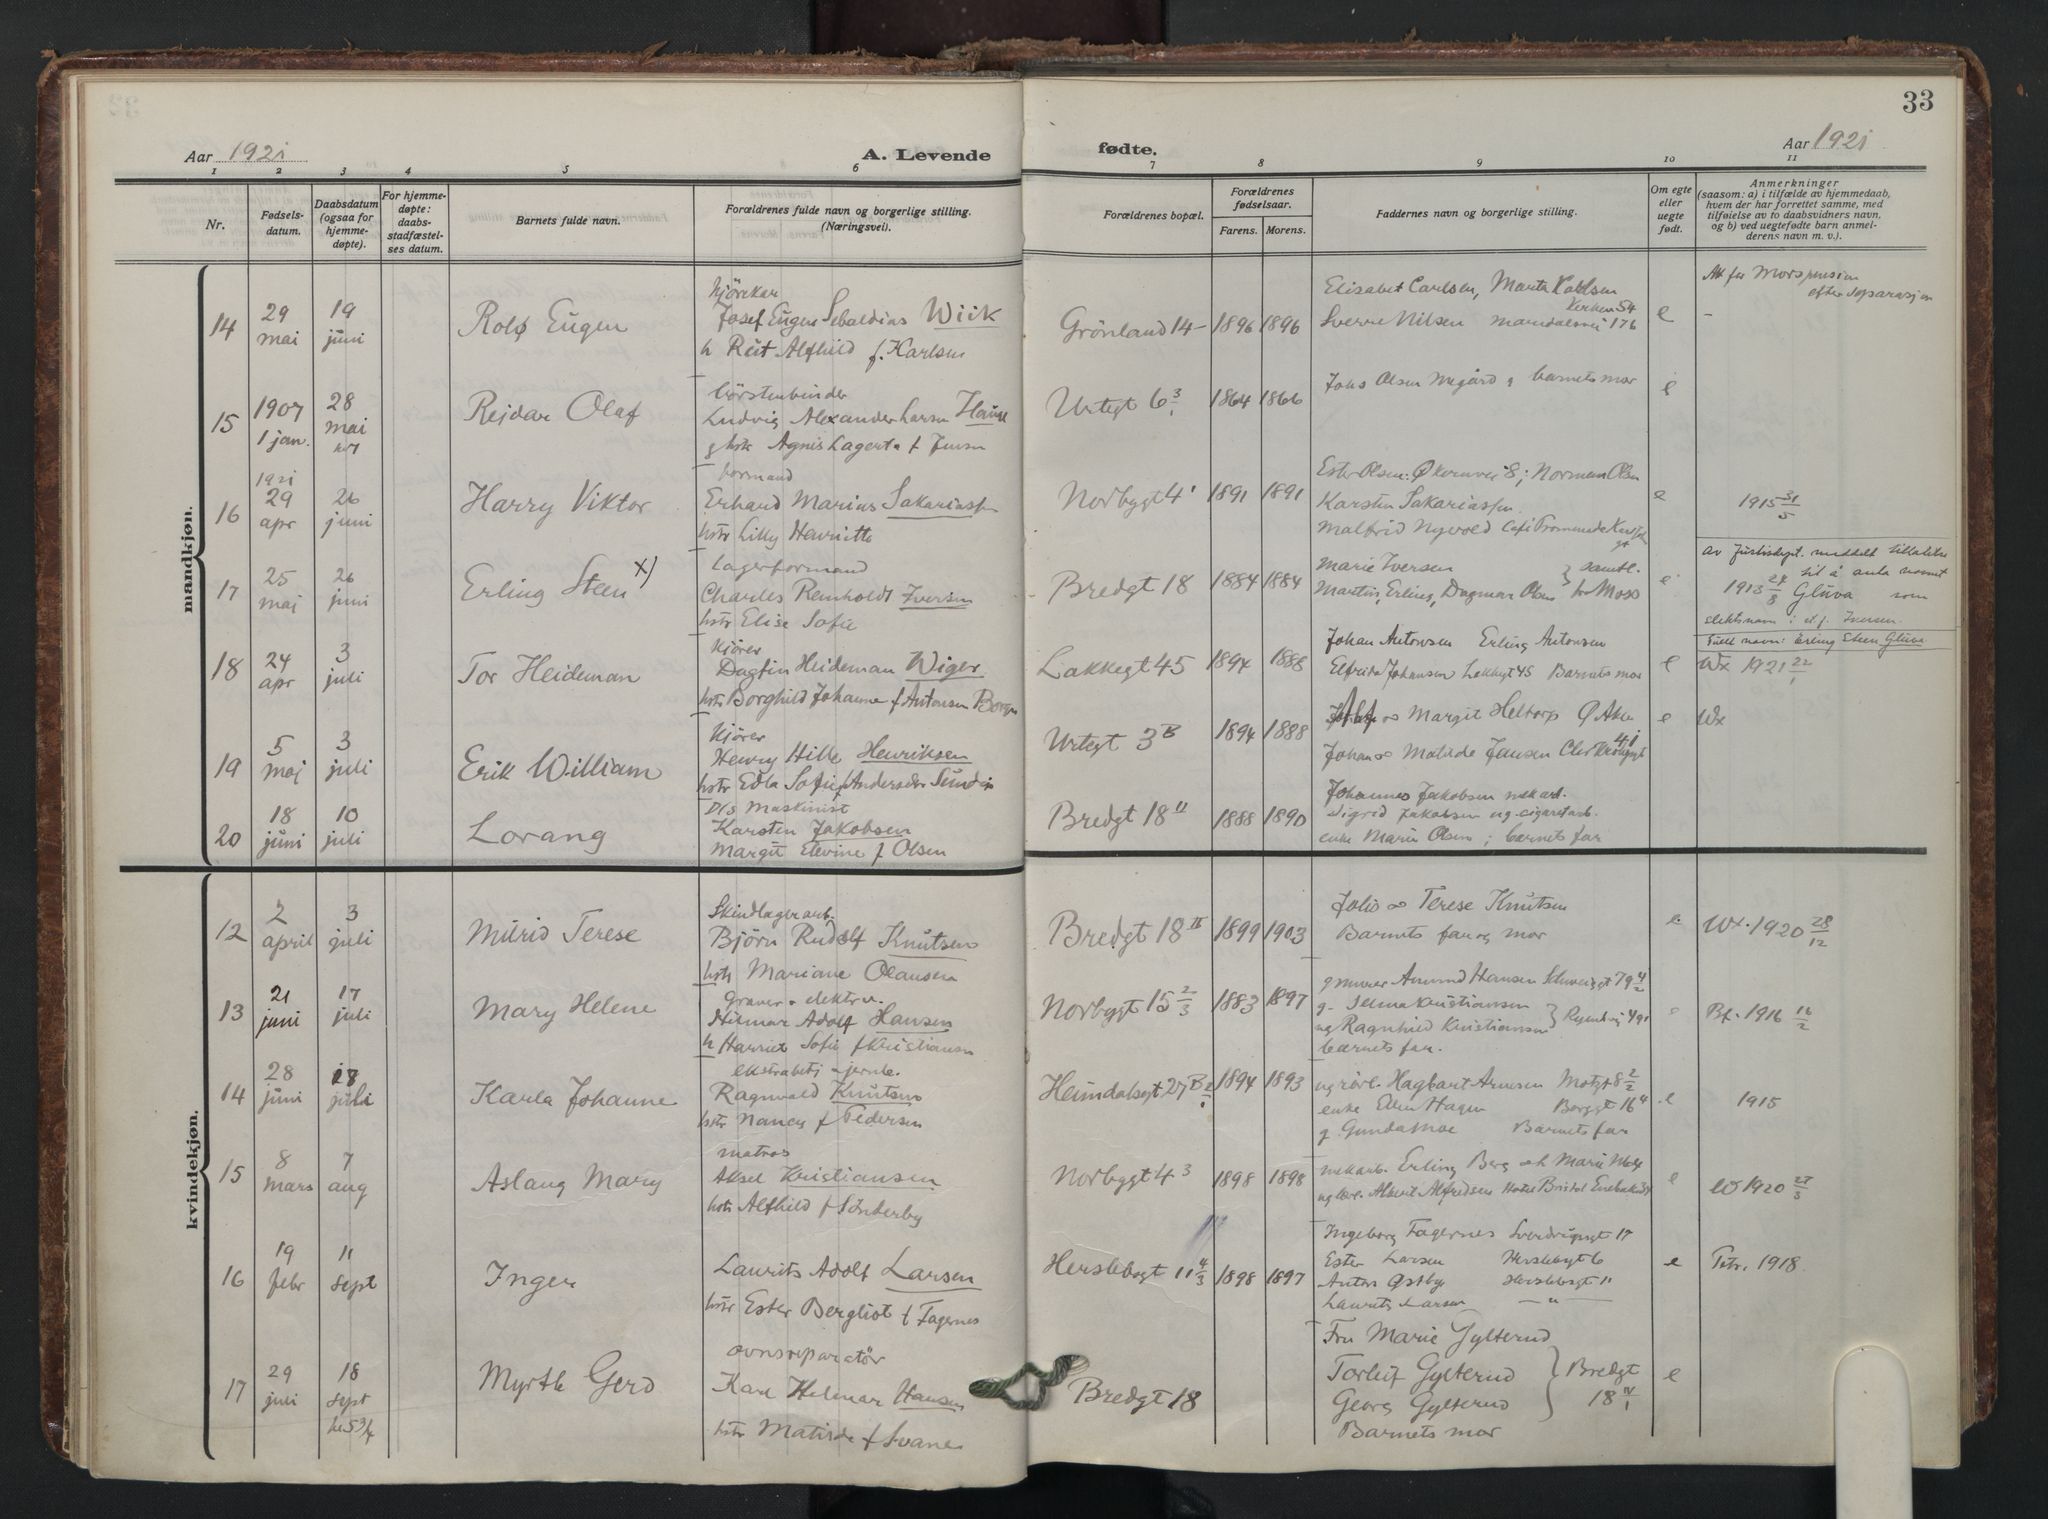 33
Aar 1921 A. Levende fødte. Aar 1921
1 2 3 4 5 6 7 8 9 10 11
Nr. Fødsels-datum. Daabsdatum (ogsaa for hjemme-døpte). For hjemme-døpte: daabs-stadfæstel-ses datum. Barnets fulde navn. Forældrenes fulde navn og borgerlige stilling. (Næringsvei). Forældrenes bopæl. Forældrenes fødselsaar. Farens. Morens. Faddernes navn og borgerlige stilling. Om egte eller uegte født. Anmerkninger (saasom: a) i tilfælde av hjemmedaab, hvem der har forrettet samme, med tilføielse av to daabsvidners navn, og b) ved uegtefødte barn anmel-derens navn m. v.).
mandkjøn.
14 29 mai 19 juni Rolf Eugen
Josef Eugen Sebaldias Wiik
h Reit Alfhild f. Karlsen
Grönland 14 1896 1896
Elisabet Carlsen, Marta Karlsen
Sverre Nilsen Maridalsvei 176 e
Att for Morspension
efter Separasjon
15 1907 1 jan. 28 mai Reidar Olaf
börstenbinder
Ludvig Alexander Larsen Hauge
Agnes Lagerta f Jensen
Urtegt 6 3/1 1864 1866
Johs Olsen barnets mor e
16 1921 29 apr 26 juni Harry Viktor
formand
Erhard Marius Sakariassen
hstr Lilly Henriette
Norbygt 4 1 1891 1891
Ester Olsen: Økernvei 8; Norman Olsen
Karsten Sakariassen
Malfrid Nyvold e
1915 31/5
17 25 maj 26 juni Erling Steen x)
Lagerformand
Charles Reinholdt Iversen
hstr Elise Sofie
Bredgt 18 1884 1884
Marie Iversen
Martin, Erling, Dagmar Olsen Moss samtl. e
Av Justisdept. meddelt tillatelse
til å anta navnet
1913 24/8 Gluva som
slektsnavn i st. f. Iversen.
Fulle navn: Erling Steen Gluva
18 24 apr 3 juli Tor Heideman
Kjører
Dagfin Heideman Wiger
hstr Borghild Johanne f Antonsen
Lakkegt 45 1894 1888
Johan Antonsen Erling Antonsen
Elfrida Johansen Lakkegt 45 Barnets mor e
Wx 1921 22/1
19 5 maj 3 juli Erik William
Kjører
Henry Hille Henriksen
hstr Edla Sofie f Andersdtr Sundin
Urtegt 3 B 1894 1888
Alf ∞ Margit Heltorp Ø Aker e Wx
Johan ∞ Matilde Jansen 41
20 18 juni 10 juli Lorang
D/S Maskinist
Karsten Jakobsen
Margit Etevine f Olsen
Bredgt 18 II 1888 1890
Johannes Jakobsen mek arb.
Sigrid Jakobsen ug cigaretarb.
enke Marie Olsen; barnets far
kvindekjøn.
12 2 april 3 juli Murid Terese
Skindlagerarb.
Bjørn Rudolf Knutsen
hstr Mariane Olausen
Bredgt 18 II 1899 1903
Julio ∞ Terese Knutsen
Barnets far og mor e
Wx. 1920 28/12
13 21 juni 17 juli Mary Helene
Hilmar Adolf Hansen
h Harriet Sofie f Kristiansen
Norbygt 15 2/3 1883 1897
g murer Amund Hansen Schweigsgt 79 4/2
g. Selma Kristiansen
ug Ragnhild Kristiansen
barnets far. e
Bf. 1916 16/2
14 28 juni 18 juli Karla Johanne
ekstrabetj jernb.
Ragnvald Knutsen
hstr Nancy f Pedersen
Heimdalsgt 27 B 2/1 1894 1893
Hagbart Arnesen Motzgt 8 2/2
enke Ellen Hagen Borggt 16 4
g. Gunda Moe Barnets far e
1915
15 8 mars 7 aug Aslaug Mary
matros
Aksel Kristiansen
hstr Alfhild f Sönderby
Norbygt 4 3 1898 1898
mekarb. Erling Berg
Albert Alfredsen Hotel Bristol e
W 1920 27/3
16 19 febr 11 sept Inger
Laurits Adolf Larsen
hstr Ester Bergliot f Fagernes
Herslebsgt 11 4/3 1898 1897
Ingeborg Fagernes Sverdrupsgt 17
Ester Larsen Herslebsgt 6
Anton Østby Herslebsgt 11
Laurits Larsen — " — e
Petr. 1918.
17 29 juli 18 sept Myrth Gerd
ovnsreparatör
Karl Helmar Hansen
hstr Matilde f Svane
Bredgt 18
Fru Marie Gylterud
Torleif Gylterud
Georg Gylterud
Barnets mor
Bredgt 18 IV/1 e